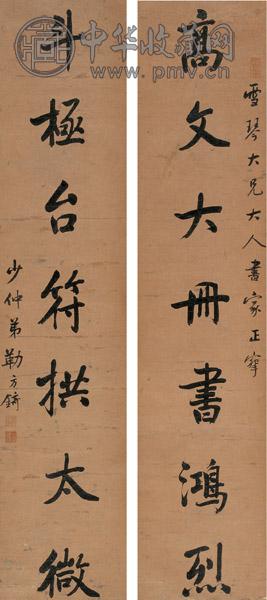 中华收藏网
www.pmv.cn
高文大冊書鴻烈
雪琴大兄大人書家正筆
斗極台符拱太微
少仲弟勒方錡